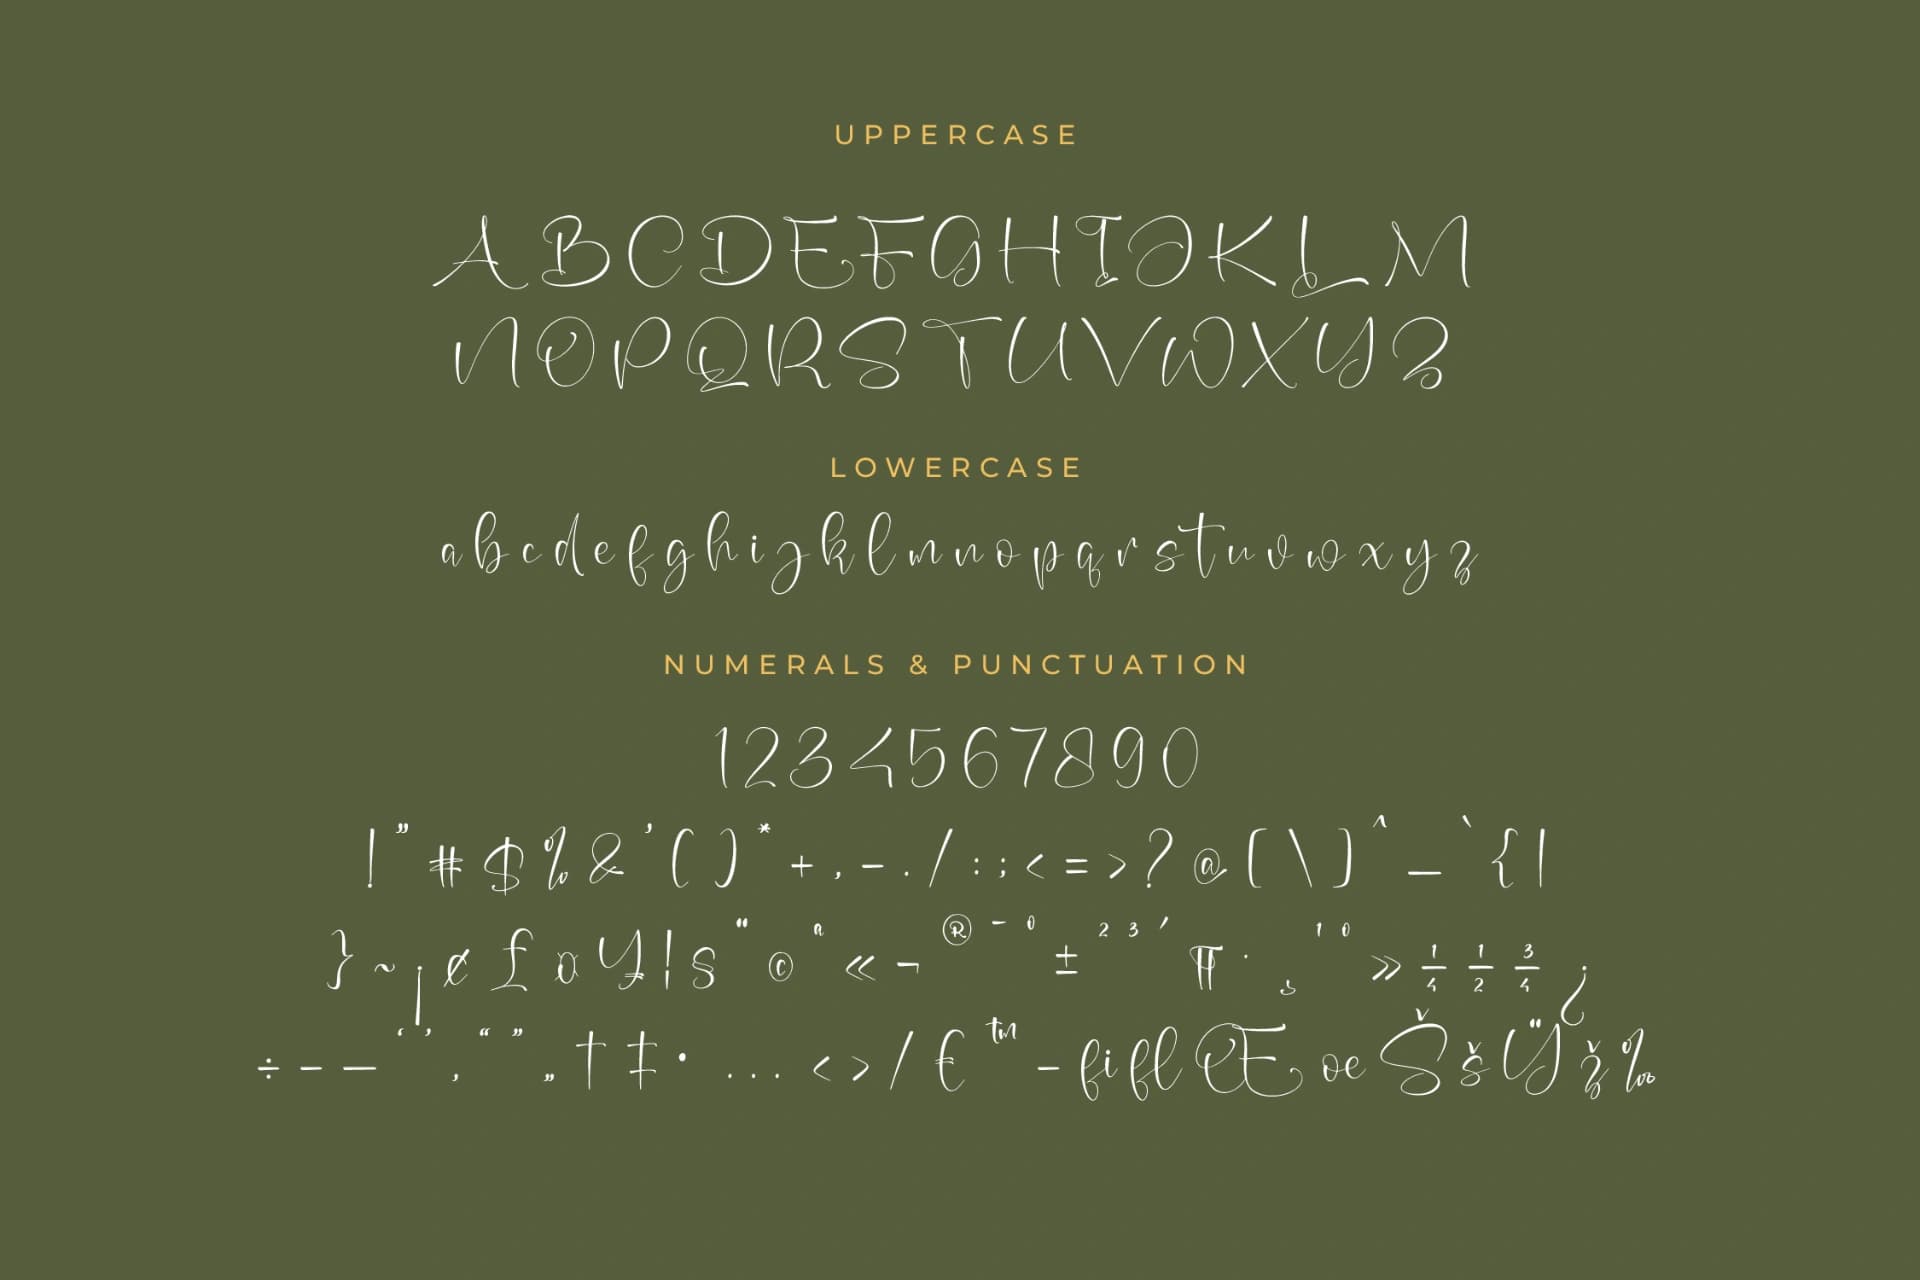 UPPERCASE
ABCDEFGHIJKLM
NOPQRSTUVWXYZ
LOWERCASE
abcdefghijklmnopqrstuvwxyz
NUMERALS & PUNCTUATION
1234567890
!"#$%&'()*+,-./:;<=>?@[\]^_`{|
}~¡¢£¤¥¦§¨©ª«¬®¯°±²³´¶·¸¹º»¼½¾¿
÷–—‘’‚“”„†‡•…‹›⁄€™−fiflŒœŠšŸž‰